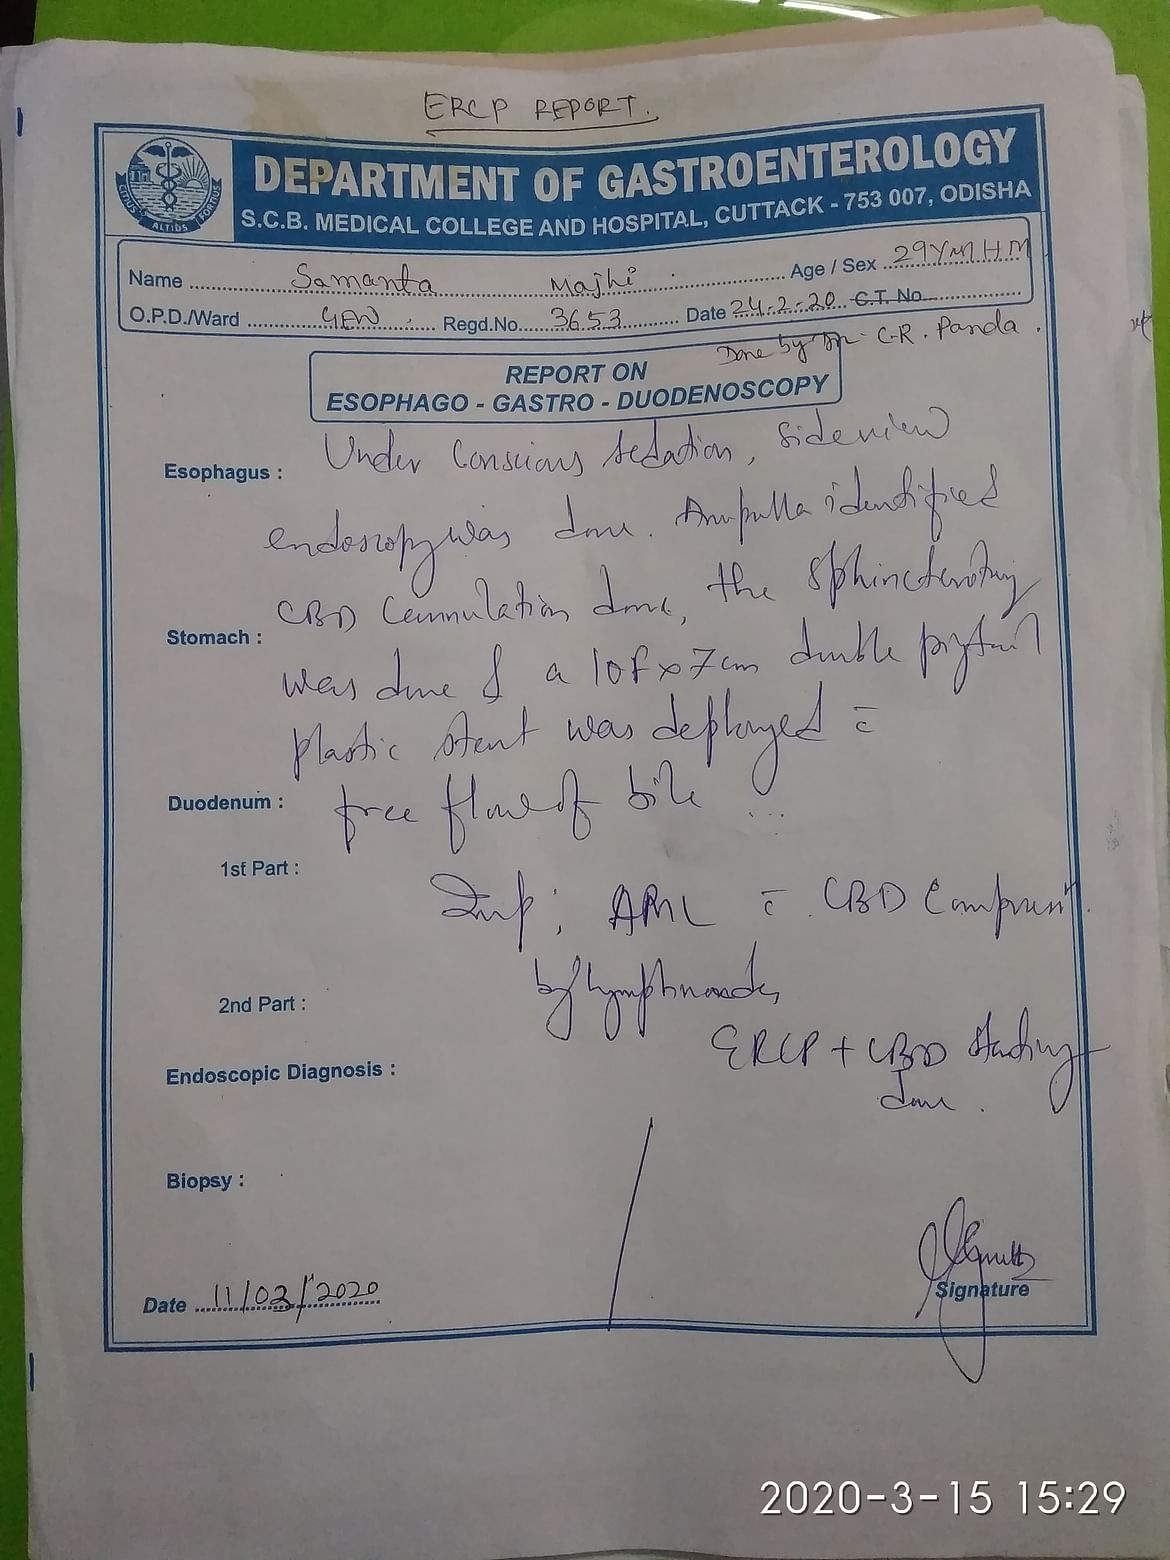 ERCP REPORT.
DEPARTMENT OF GASTROENTEROLOGY
S.C.B. MEDICAL COLLEGE AND HOSPITAL, CUTTACK - 753 007, ODISHA
CITIUS ALTIUS FORTIUS
Name Samanta Majhi Age / Sex 29Y M H M
O.P.D./Ward Regd.No. 3653 Date 24-2-20 C.T. No.
Done by Dr C.R. Panda.
REPORT ON
ESOPHAGO - GASTRO - DUODENOSCOPY
Esophagus : Under Conscious sedation, sideview
endoscopy was done. Ampulla identified
CBD Cannulation done, the sphincterotomy
Stomach :
was done & a 10F x 7cm double pigtail
plastic stent was deployed c̄
Duodenum : free flow of bile
1st Part :
Imp: c̄ CBD
by lymphnodes,
2nd Part :
ERCP + CBD stenting
Endoscopic Diagnosis :
done.
Biopsy :
Date 11/03/2020
Signature
2020-3-15 15:29